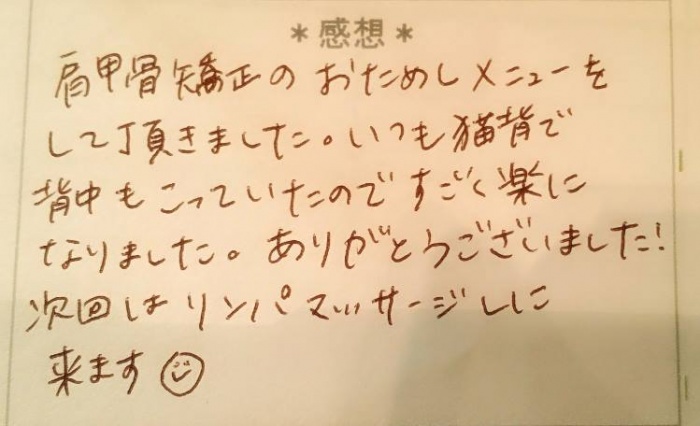 *感想*
肩甲骨矯正のおためしメニューを
して頂きました。いつも猫背で
背中もこっていたのですごく楽に
なりました。ありがとうございました!
次回はリンパマッサージしに
来ます☺